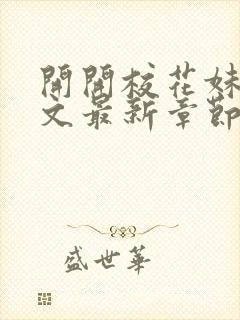 開開校花妹
文最新章節
盛世華